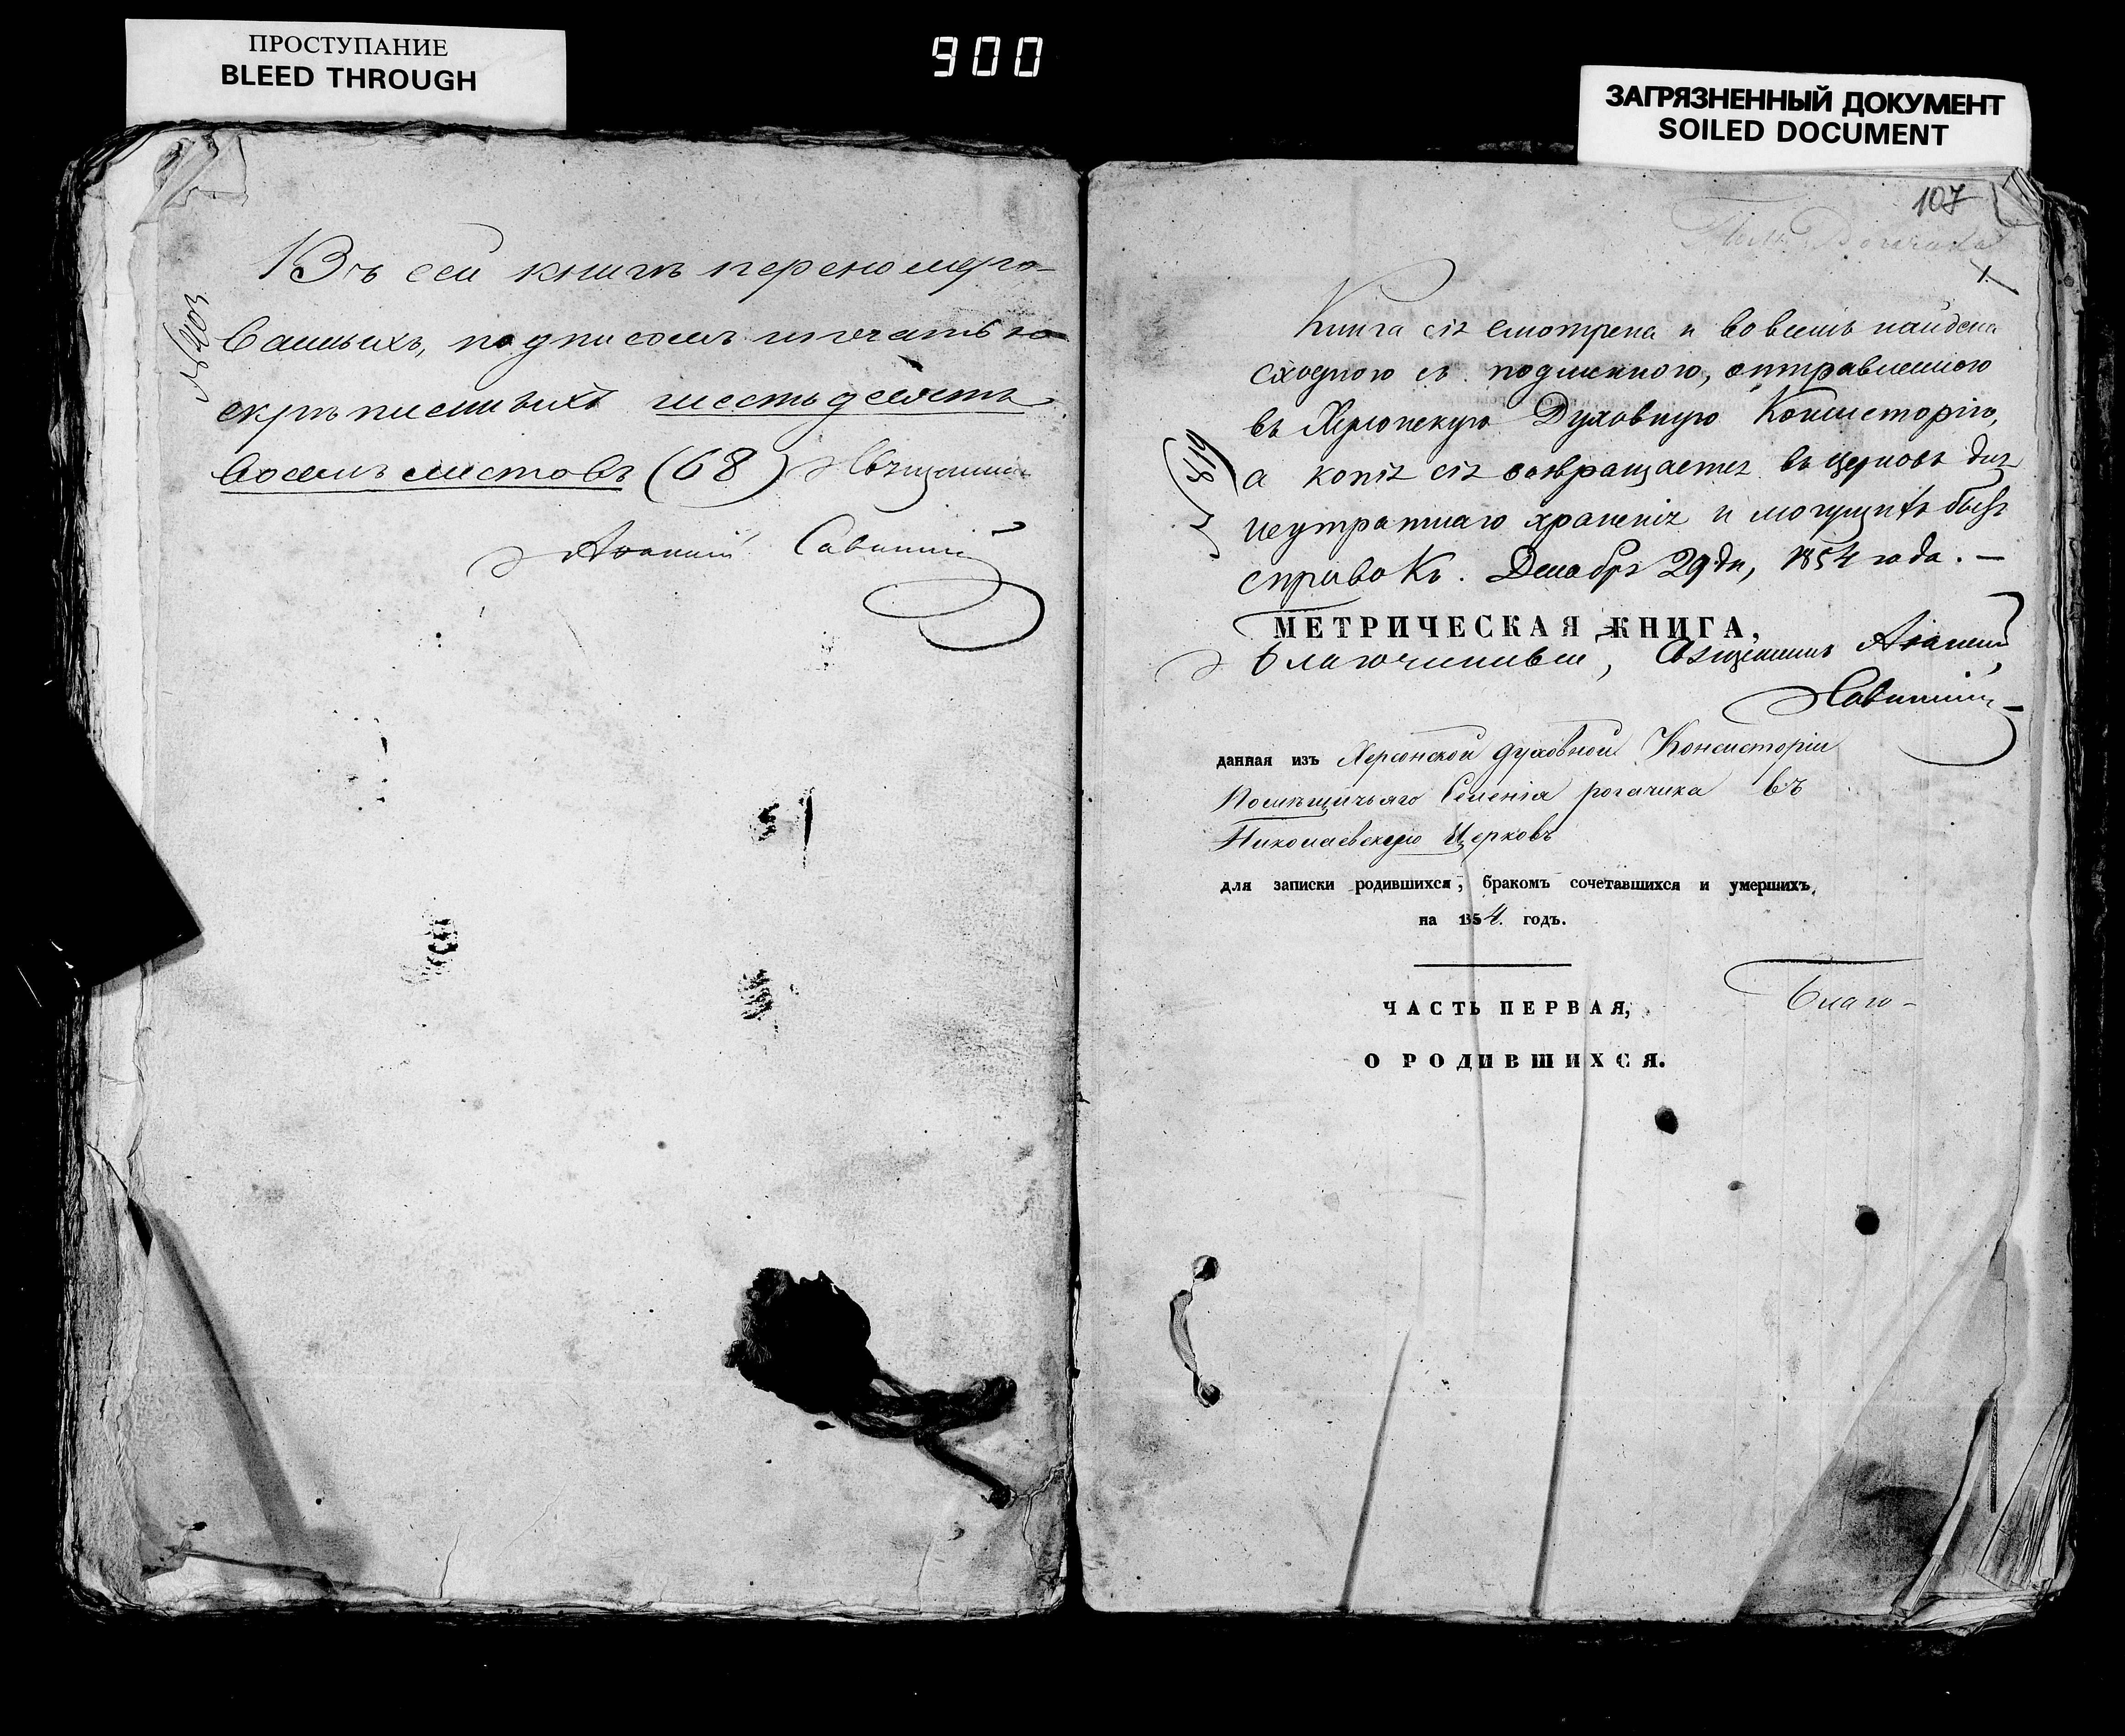 ПРОСТУПАНИЕ
BLEED THROUGH
900
ЗАГРЯЗНЕННЫЙ ДОКУМЕНТ
SOILED DOCUMENT
Въ сей книгѣ переномеро-
ванныхъ, подписомъ и печатью
скрѣпленныхъ шестьдесятъ
восемь листовъ (68) Священникъ
Іоанній Савинскій
107
1.
Книга сія смотрена и во всемъ найдена
сходною съ подлинною, отправленною
въ Херсонскую Духовную Консисторію,
а копія сія возвращается въ церковь для
неутратнаго храненія и могущихъ быть
справокъ. Декабря 29 дн, 1854 года. —
№ 819
МЕТРИЧЕСКАЯ КНИГА,
Благочинный, Священникъ
данная изъ Херсонской духовной Консисторіи
Помѣщичьяго Селенія рогачика въ
Николаевскую Церковь
для записки родившихся, бракомъ сочетавшихся и умершихъ,
на 1854. годъ.
ЧАСТЬ ПЕРВАЯ,
Благо-
О РОДИВШИХСЯ.